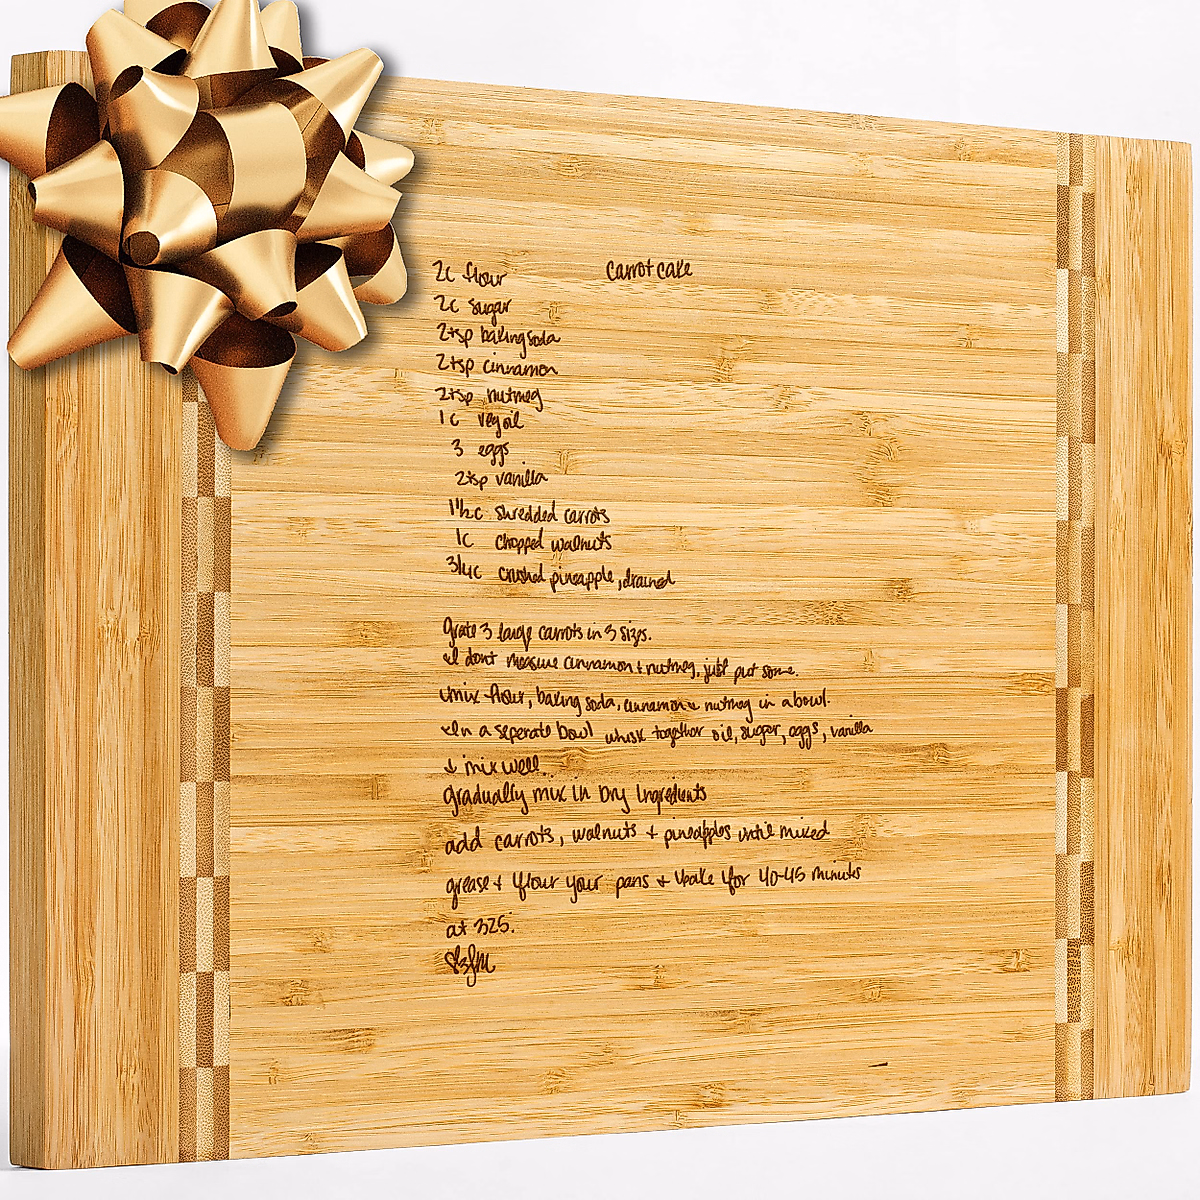 Carrot cake
2c flour
2c sugar
2tsp baking soda
2tsp cinnamon
2tsp nutmeg
1c veg oil
3 eggs
2tsp vanilla
1 1/2c shredded carrots
1c chopped walnuts
3/4c crushed pineapple, drained
grate 3 large carrots in 3 sizes.
I dont measure cinnamon + nutmeg, just put some.
mix flour, baking soda, cinnamon & nutmeg in a bowl.
In a seperate bowl whisk together oil, sugar, eggs, vanilla
& mix well.
gradually mix in Dry Ingredients
add carrots, walnuts + pineapples until mixed
grease + flour your pans + bake for 40-45 minutes
at 325.